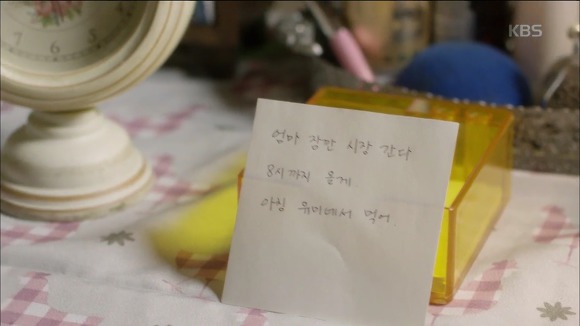 KBS
엄마 잠깐 시장 간다
8시까지 올게.
아침 유미네서 먹어.
7
6
5